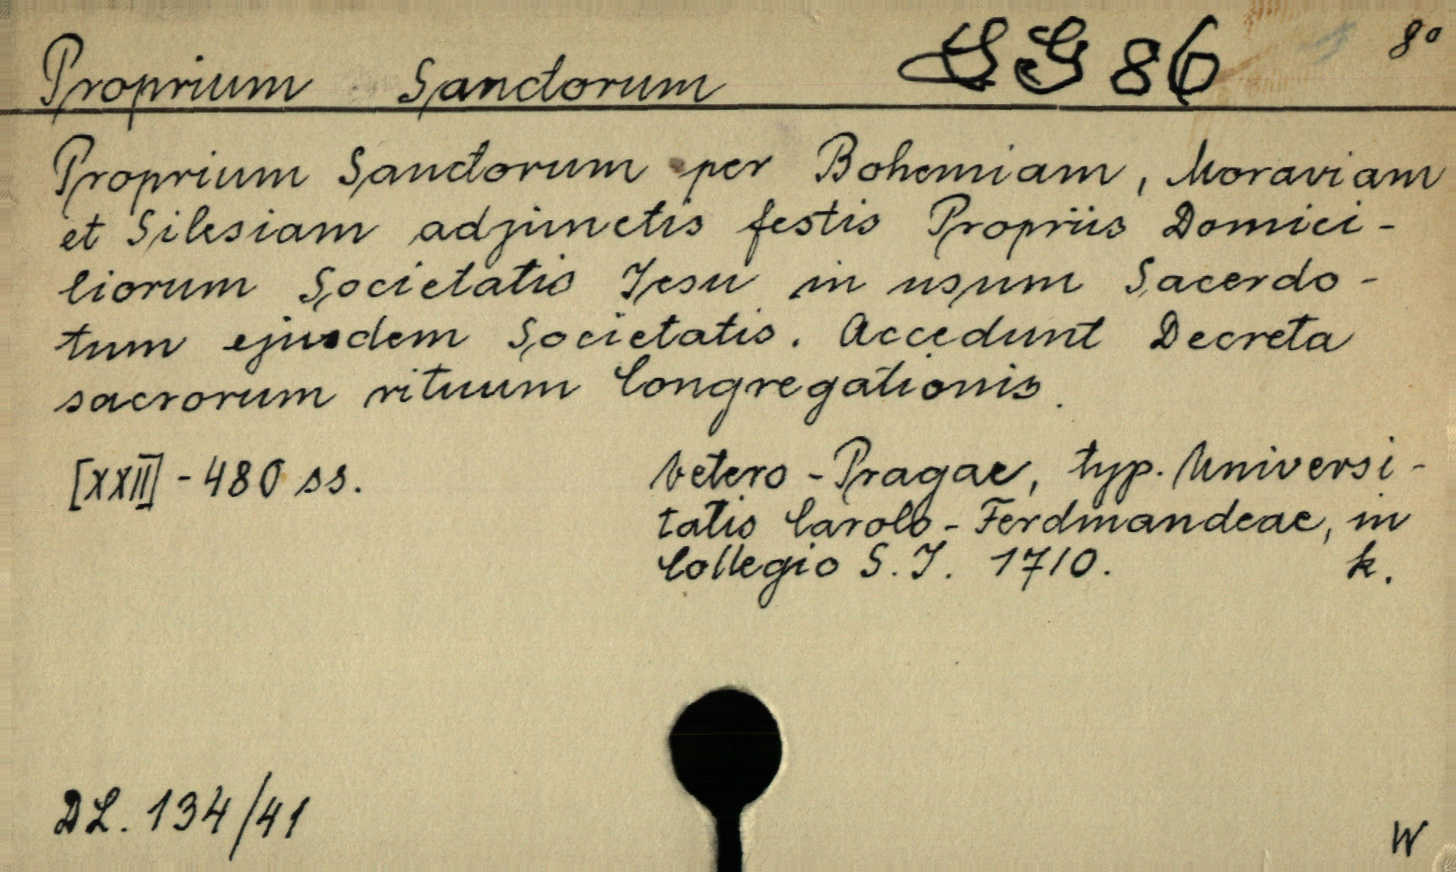 Proprium Sanctorum SG 86 8°
Proprium Sanctorum per Bohemiam, Moraviam
et Silesiam adjunctis festis Propriis Domici-
liorum Societatis Jesu in usum Sacerdo-
tum ejusdem Societatis. Accedunt Decreta
sacrorum rituum Congregationis.
[XXII] - 480 ss.
Vetero - Pragae, typ. Universi-
tatis Carolo - Ferdinandeae, in
Collegio S. J. 1710. k.
DL. 134/41
W